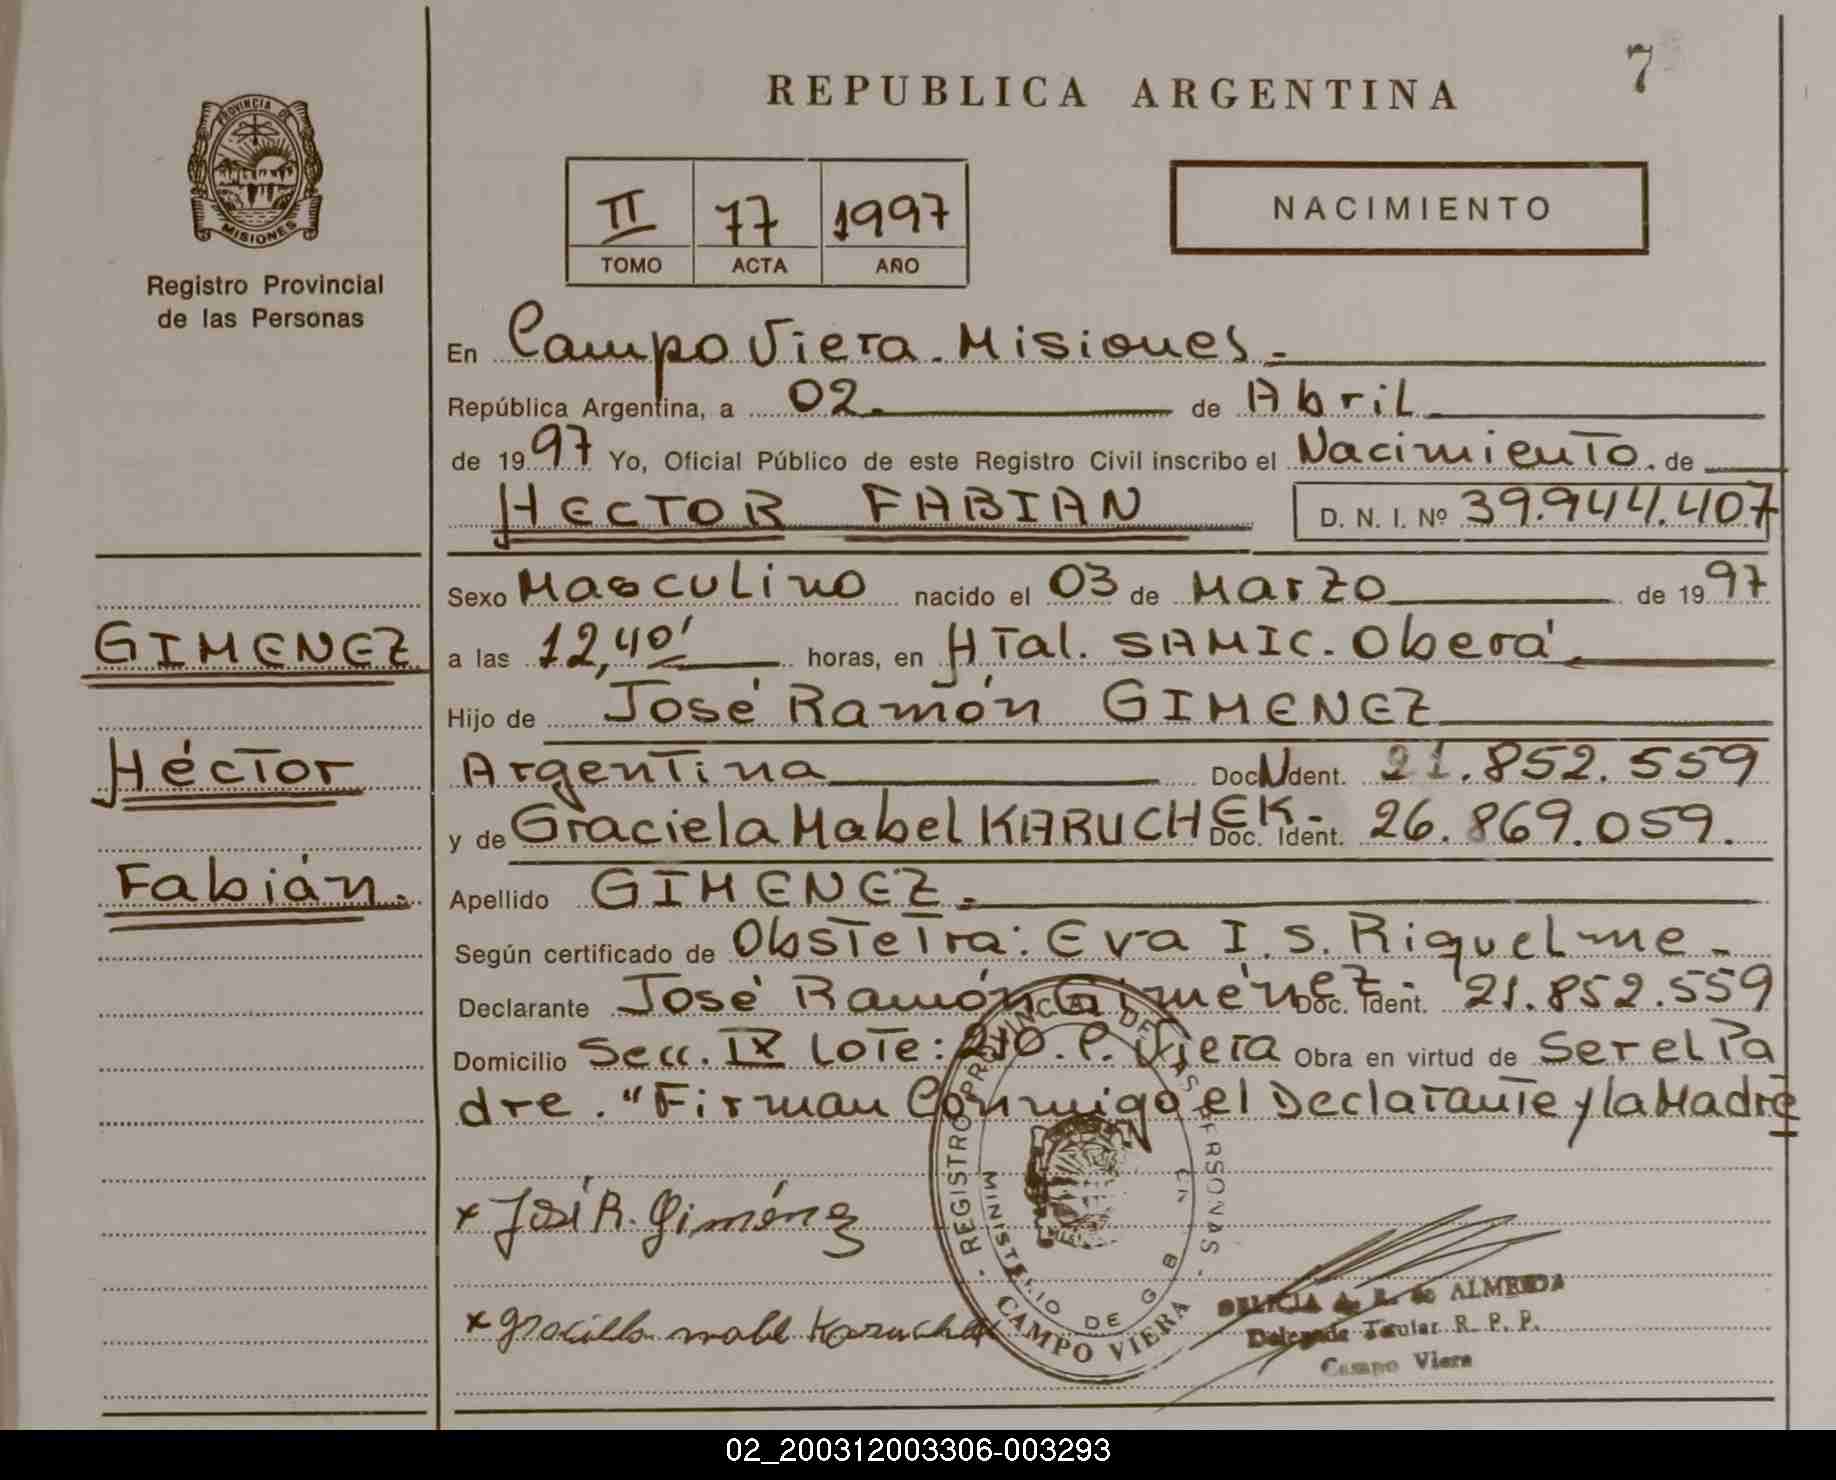 7
REPUBLICA ARGENTINA
PROVINCIA DE
MISIONES
Registro Provincial
de las Personas
II 77 1997
TOMO ACTA AÑO
NACIMIENTO
En Campo Viera. Misiones.
República Argentina, a 02. de Abril
de 1997 Yo, Oficial Público de este Registro Civil inscribo el Nacimiento. de
HECTOR FABIAN D. N. I. Nº 39.944.407
Sexo Masculino nacido el 03 de Marzo de 1997
GIMENEZ
a las 12,40' horas, en HTal. SAMIC. Oberá
Hijo de José Ramón GIMENEZ
Héctor
Argentina Doc. N Ident. 21.852.559
y de Graciela Mabel KARUCHEK. Doc. Ident. 26.869.059.
Fabián.
Apellido GIMENEZ.
Según certificado de Obstetra: Eva I. S. Riquelme.
Declarante José Ramón Giménez. Doc. Ident. 21.852.559
Domicilio Secc. IX Lote: 210. C. Viera Obra en virtud de Ser el Pa
dre. "Firman Conmigo el Declarante y la Madre
x José R. Giménez
x Graciela mabel Karuchek
REGISTRO PROVINCIAL DE LAS PERSONAS
MINISTERIO DE G. B. EN
CAMPO VIERA
DELICIA de ALMEIDA
Delegada Titular R. P. P.
Campo Viera
02_200312003306-003293